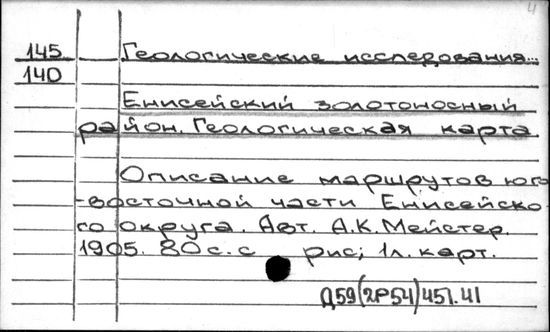 4
145 Геологические исследования...
140
Енисейский золотоносный
район. Геологическая карта
Описание маршрутов юго
-восточной части Енисейско-
го округа. Авт. А.К. Мейстер.
1905. 80 с. с рис; 1л. карт.
Д59(2Р54)451.41